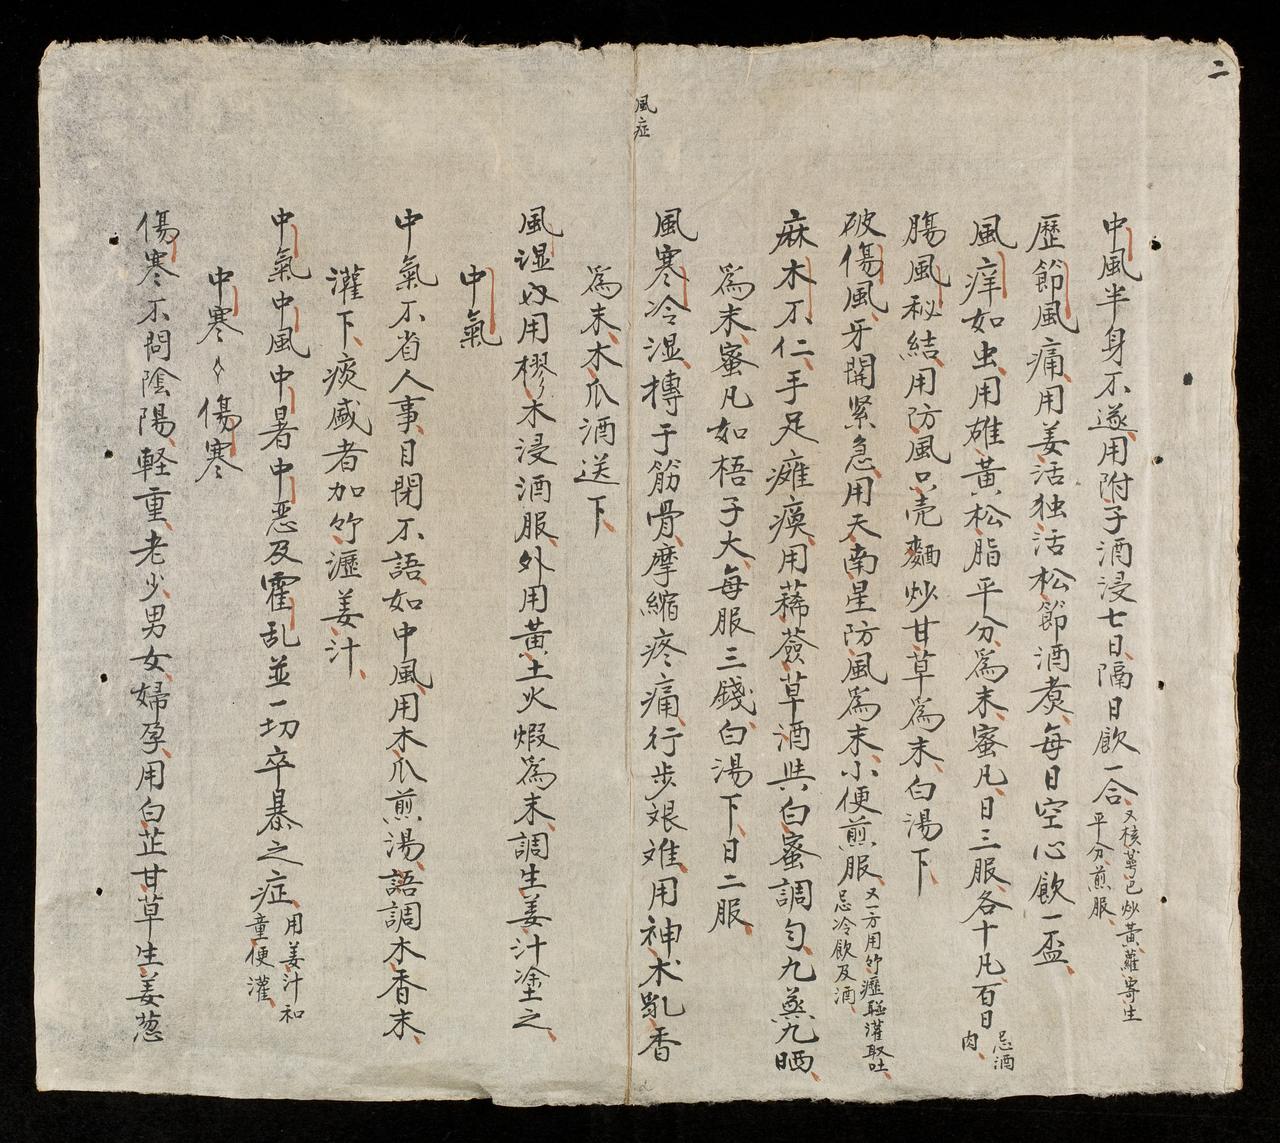 二
中風半身不遂用附子酒浸七日隔日飲一合
又核萆巴炒黃蘿寄生
平分煎服
歷節風痛用姜活独活松節酒煑每日空心飲一盃
風痒如虫用雄黃松脂平分為末蜜凡日三服各十凡百日
忌酒
肉
腸風秘結用防風只壳麵炒甘草為末白湯下
破傷風牙開緊急用天南星防風為末小便煎服
又一方用竹瀝灌取吐
忌冷飲及酒
麻木不仁手足癱瘓用蒒薟草酒與白蜜調勻九蒸九晒
為末蜜凡如梧子大每服三錢白湯下日二服
風症
風寒冷湿摶于筋骨摩縮疼痛行步艰难用神木乳香
為末木瓜酒送下
風湿用樛木浸酒服外用黃土火煆為末調生姜汁塗之
中氣
中氣不省人事目閉不語如中風用木瓜煎湯語調木香末
灌下痰盛者加竹瀝姜汁
中氣中風中暑中恶及霍乱並一切卒暴之症
用姜汁和
童便灌
中寒 傷寒
傷寒不問陰陽軽重老少男女婦孕用白芷甘草生姜葱